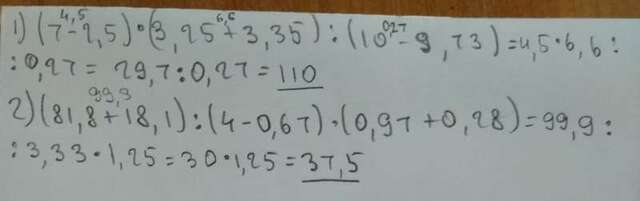 4,5 6,6 0,27
1) (7-2,5)·(3,25+3,35):(10-9,73)=4,5·6,6:
:0,27=29,7:0,27=110
99,9
2)(81,8+18,1):(4-0,67)·(0,97+0,28)=99,9:
:3,33·1,25=30·1,25=37,5